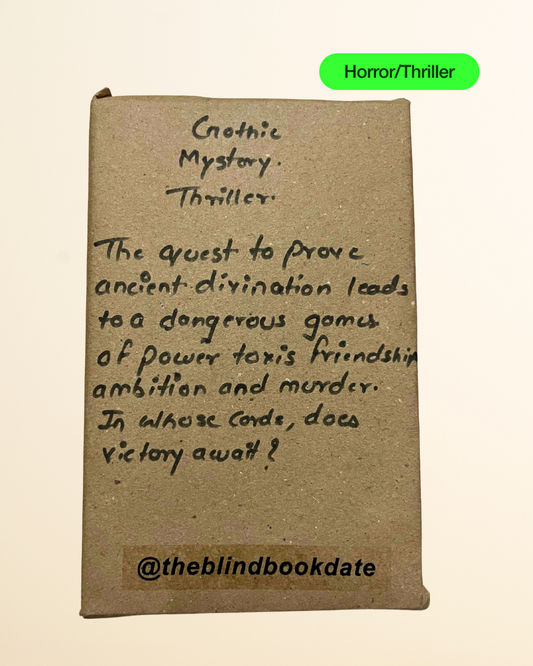 Horror/Thriller
Gothic
Mystory.
Thriller.
The quest to prove
ancient divination leads
to a dangerous games
of power toxis friendship
ambition and murder.
In whose cards, does
victory await?
@theblindbookdate